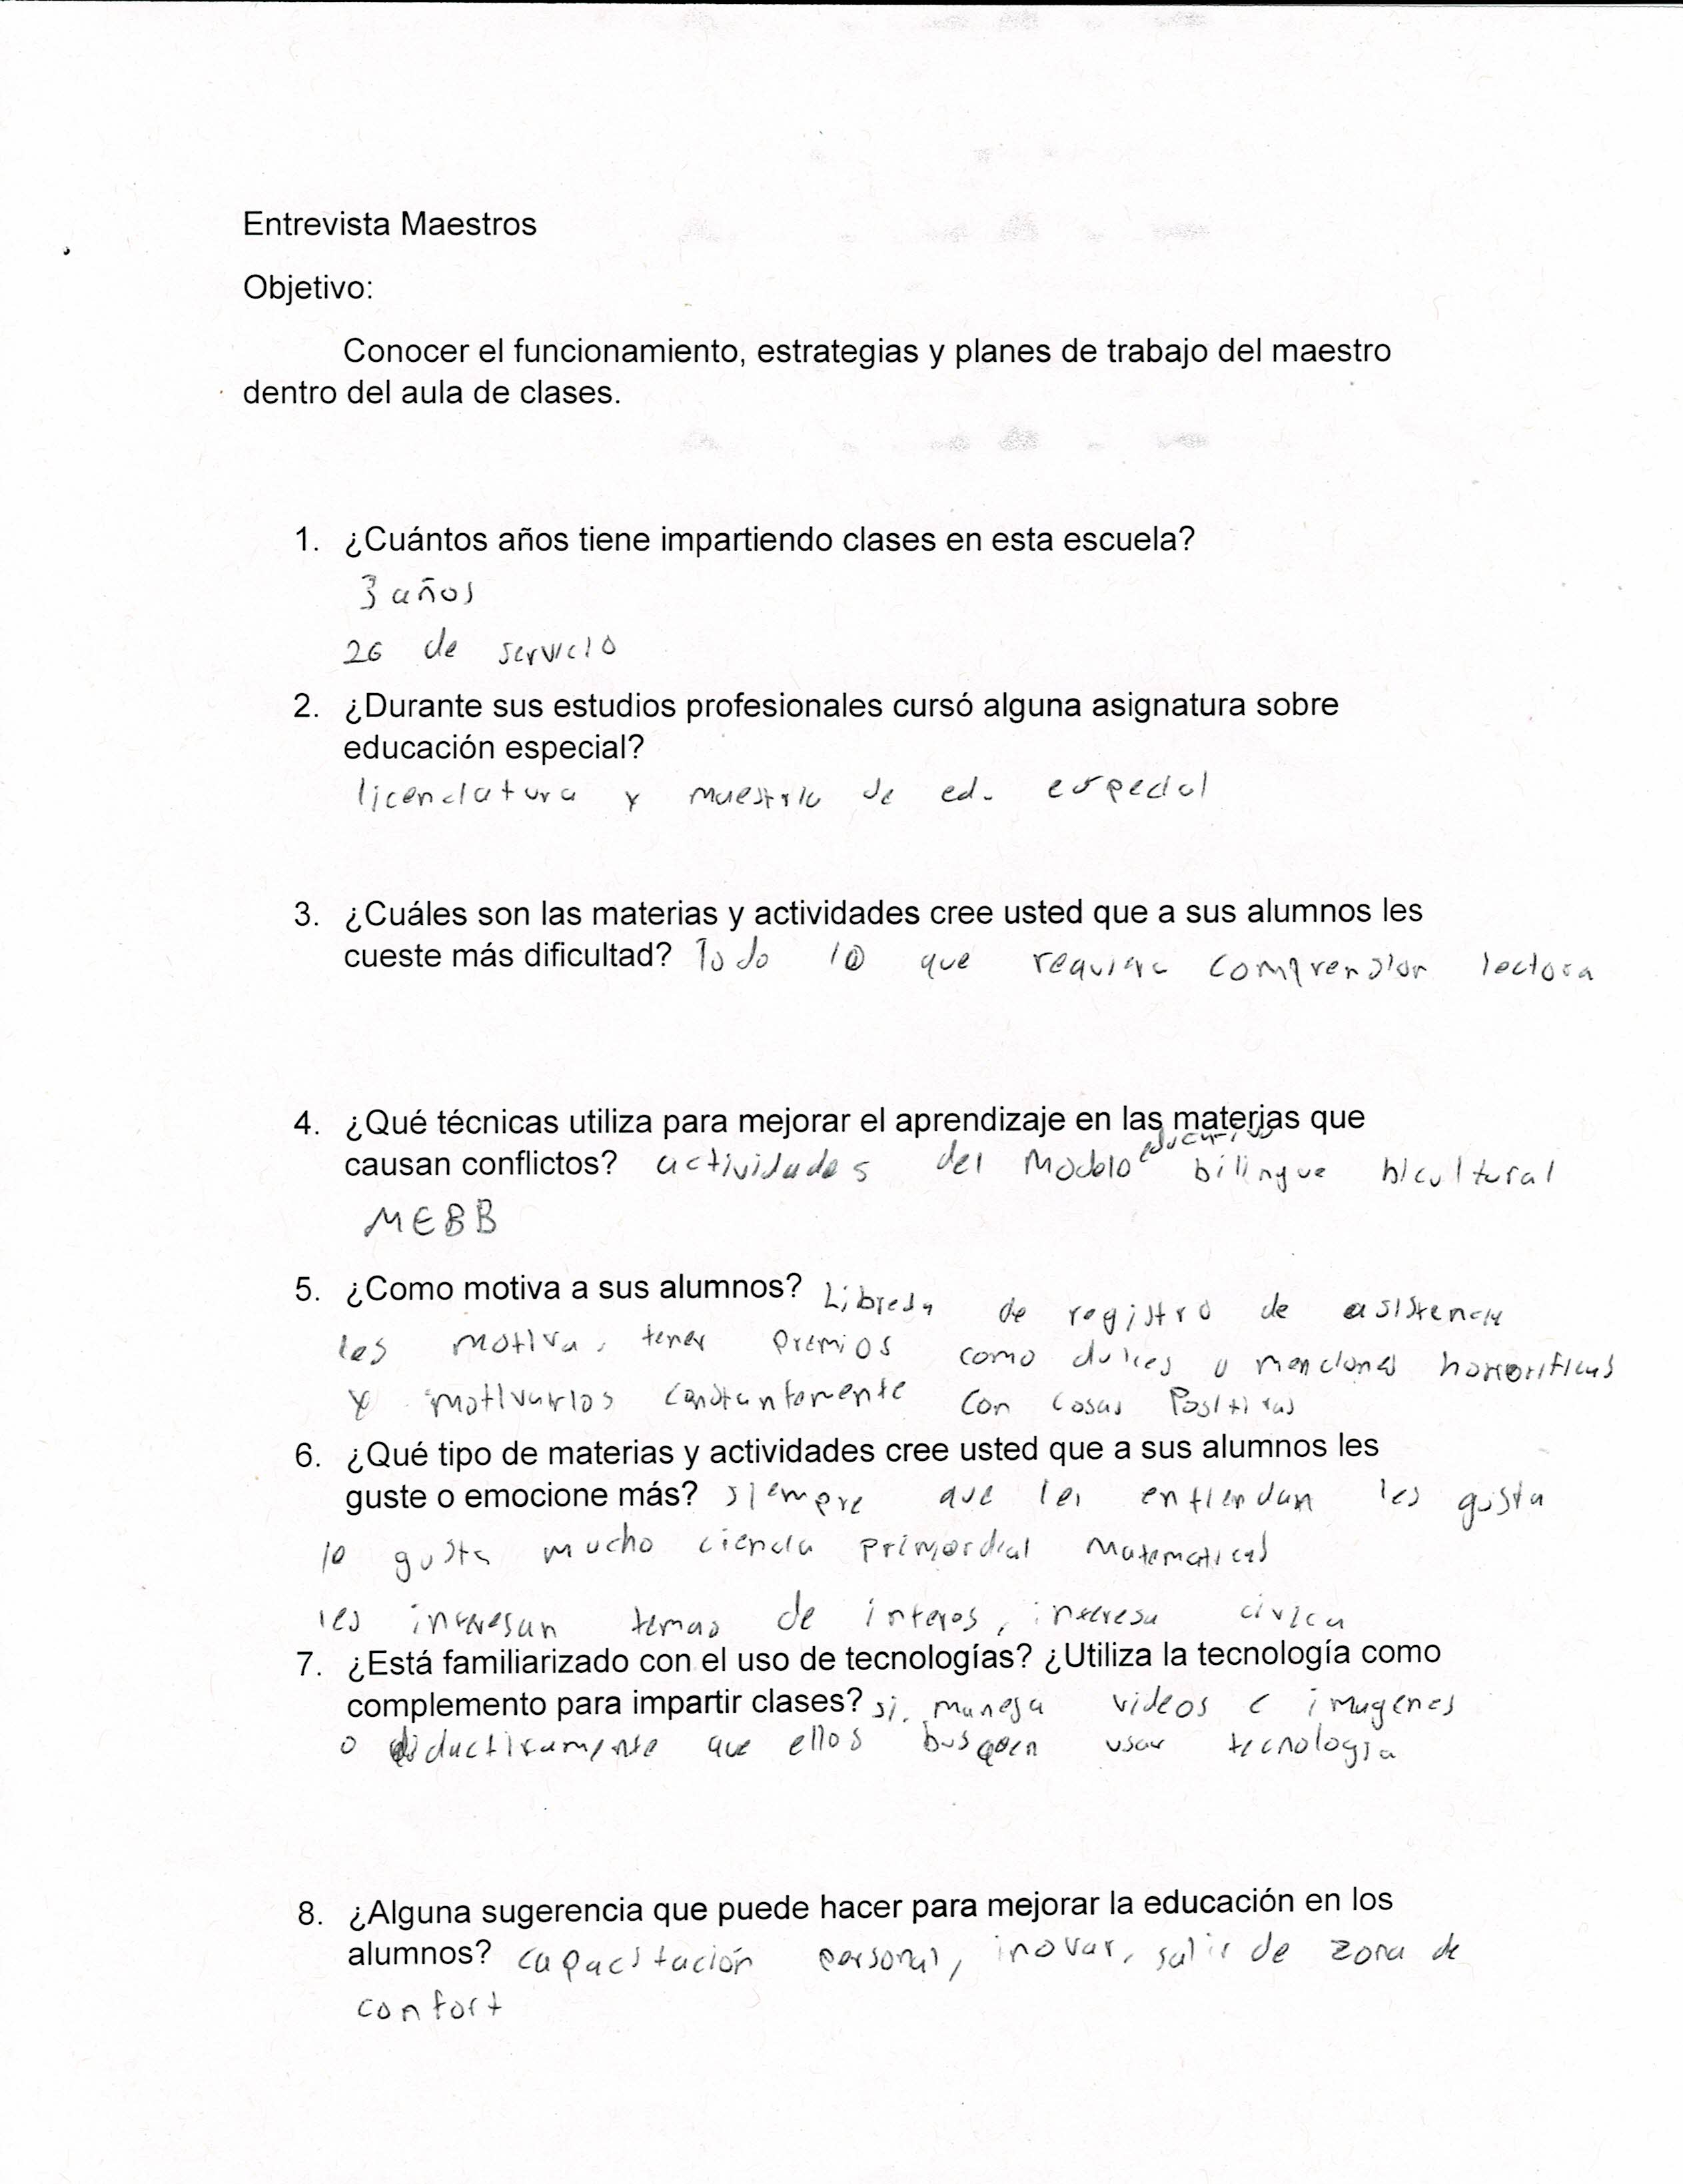 Entrevista Maestros
Objetivo:
Conocer el funcionamiento, estrategias y planes de trabajo del maestro
dentro del aula de clases.
1. ¿Cuántos años tiene impartiendo clases en esta escuela?
3 años
26 de servicio
2. ¿Durante sus estudios profesionales cursó alguna asignatura sobre
educación especial?
licenciatura y maestria de ed. especial
3. ¿Cuáles son las materias y actividades cree usted que a sus alumnos les
cueste más dificultad? Todo lo que requiera comprension lectora
4. ¿Qué técnicas utiliza para mejorar el aprendizaje en las materias que
causan conflictos? actividades del Modelo educativo bilingue bicultural
MEBB
5. ¿Como motiva a sus alumnos? Libreta de registro de asistencia
les motiva, tener premios como dulces o menciones honorificas
y motivarlos constantemente con cosas Positivas
6. ¿Qué tipo de materias y actividades cree usted que a sus alumnos les
guste o emocione más? siempre que les entiendan les gusta
lo gusta mucho ciencia primordial Matematicas
les interesan temas de interes, interesa civica
7. ¿Está familiarizado con el uso de tecnologías? ¿Utiliza la tecnología como
complemento para impartir clases? si, maneja videos e imagenes
o didactivamente que ellos busquen usar tecnologia
8. ¿Alguna sugerencia que puede hacer para mejorar la educación en los
alumnos? capacitación personal, inovar, salir de zona de
confort